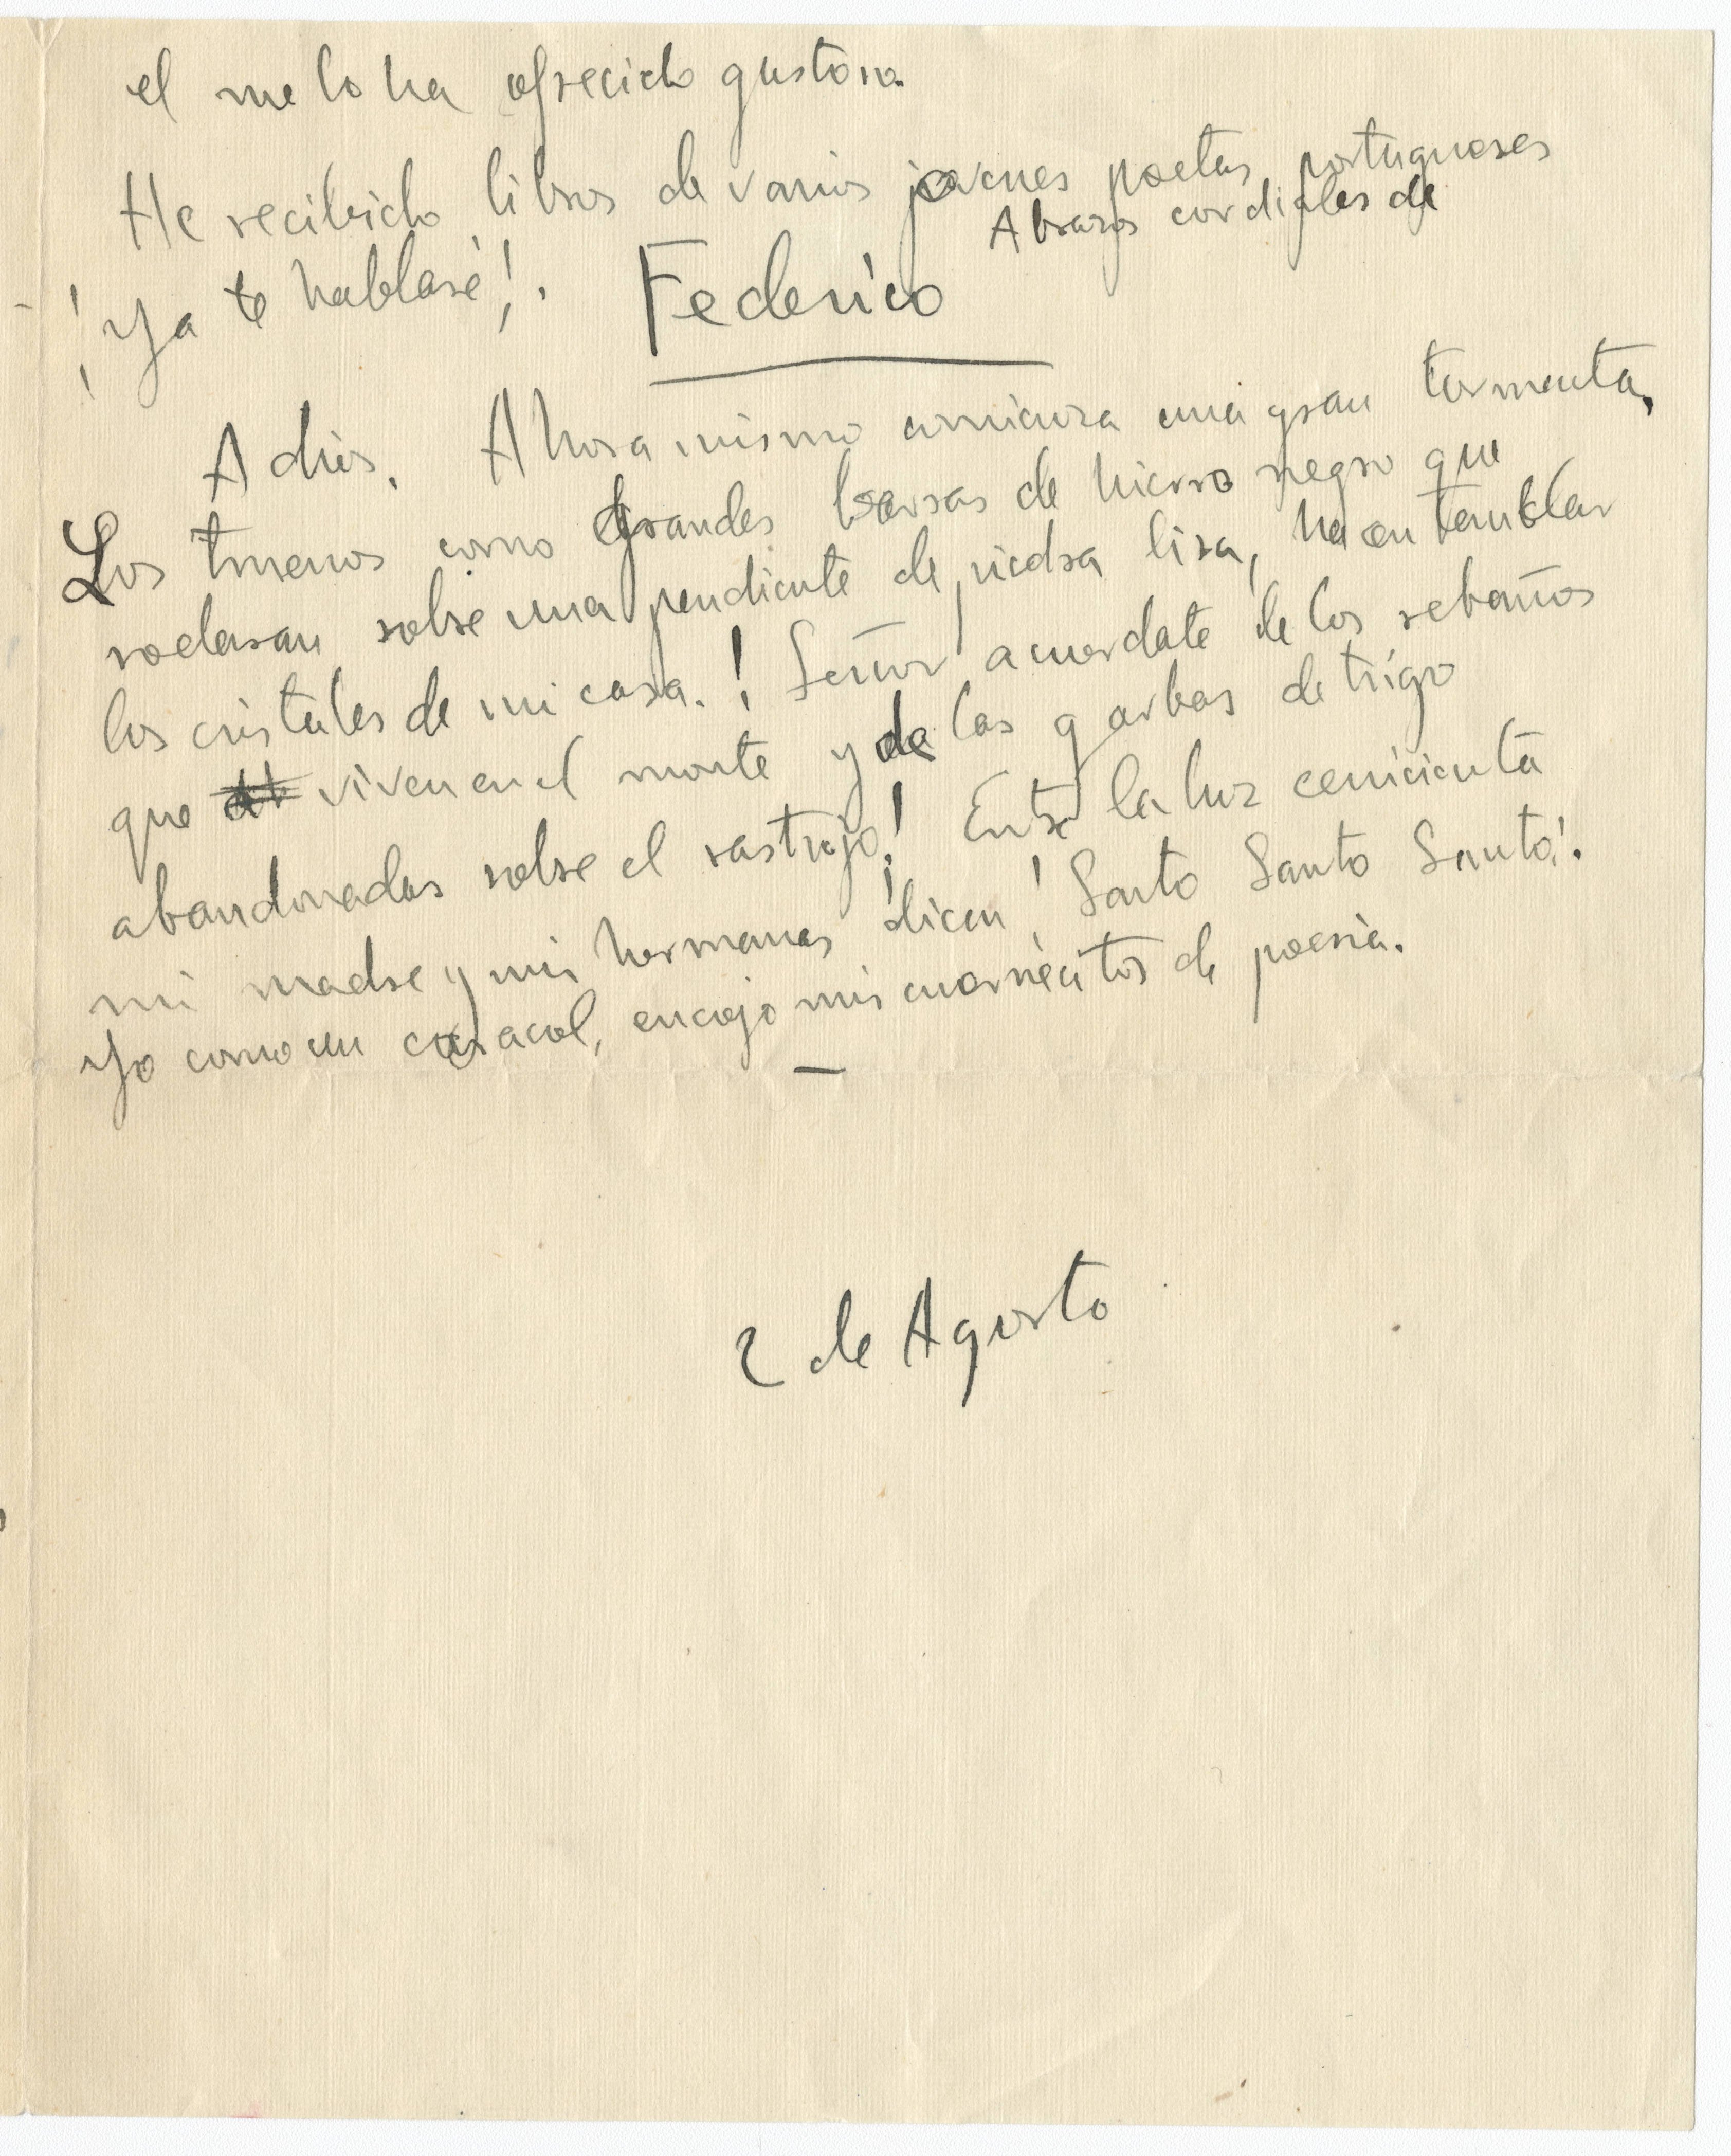 el me lo ha ofrecido gustoso.
He recibido libros de varios jovenes poetas portugueses
Abrazos cordiales de
¡Ya te hablaré!. Federico
Adiós. Ahora mismo comienza una gran tormenta,
Los truenos como grandes barras de hierro negro que
rodaran sobre una pendiente de piedra lisa, hacen temblar
los cristales de mi casa. ! Señor acuerdate de los rebaños
que viven en el monte y de las garbas de trigo
abandonadas sobre el rastrojo! Entre la luz cenicienta
mi madre y mis hermanas dicen ¡Santo Santo Santo!.
Yo como un caracol, encojo mis cuernecitos de poesía.
2 de Agosto